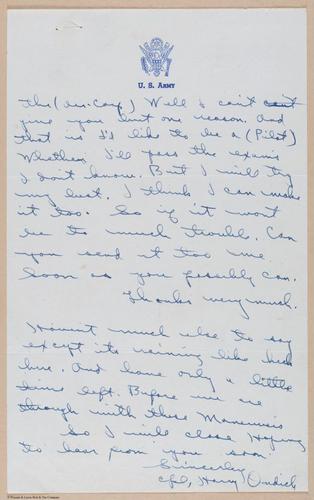 U. S. ARMY
the (Air. Corp) Well I can't
give you but one reason. And
that is I'd like to be a (Pilot)
Whether I'll pass the exams
I don't know. But I will try
my best. I think I can make
it too. So if it wont
be to much trouble. Can
you send it too me
soon as you possibly can.
Thanks very much.
Haven't much else to say
except its raining like
here. And have only a little
time left. Before we are
through with these Manuevers
So I will close Hoping
to hear from you soon.
Sincerely
Cpl, Harry